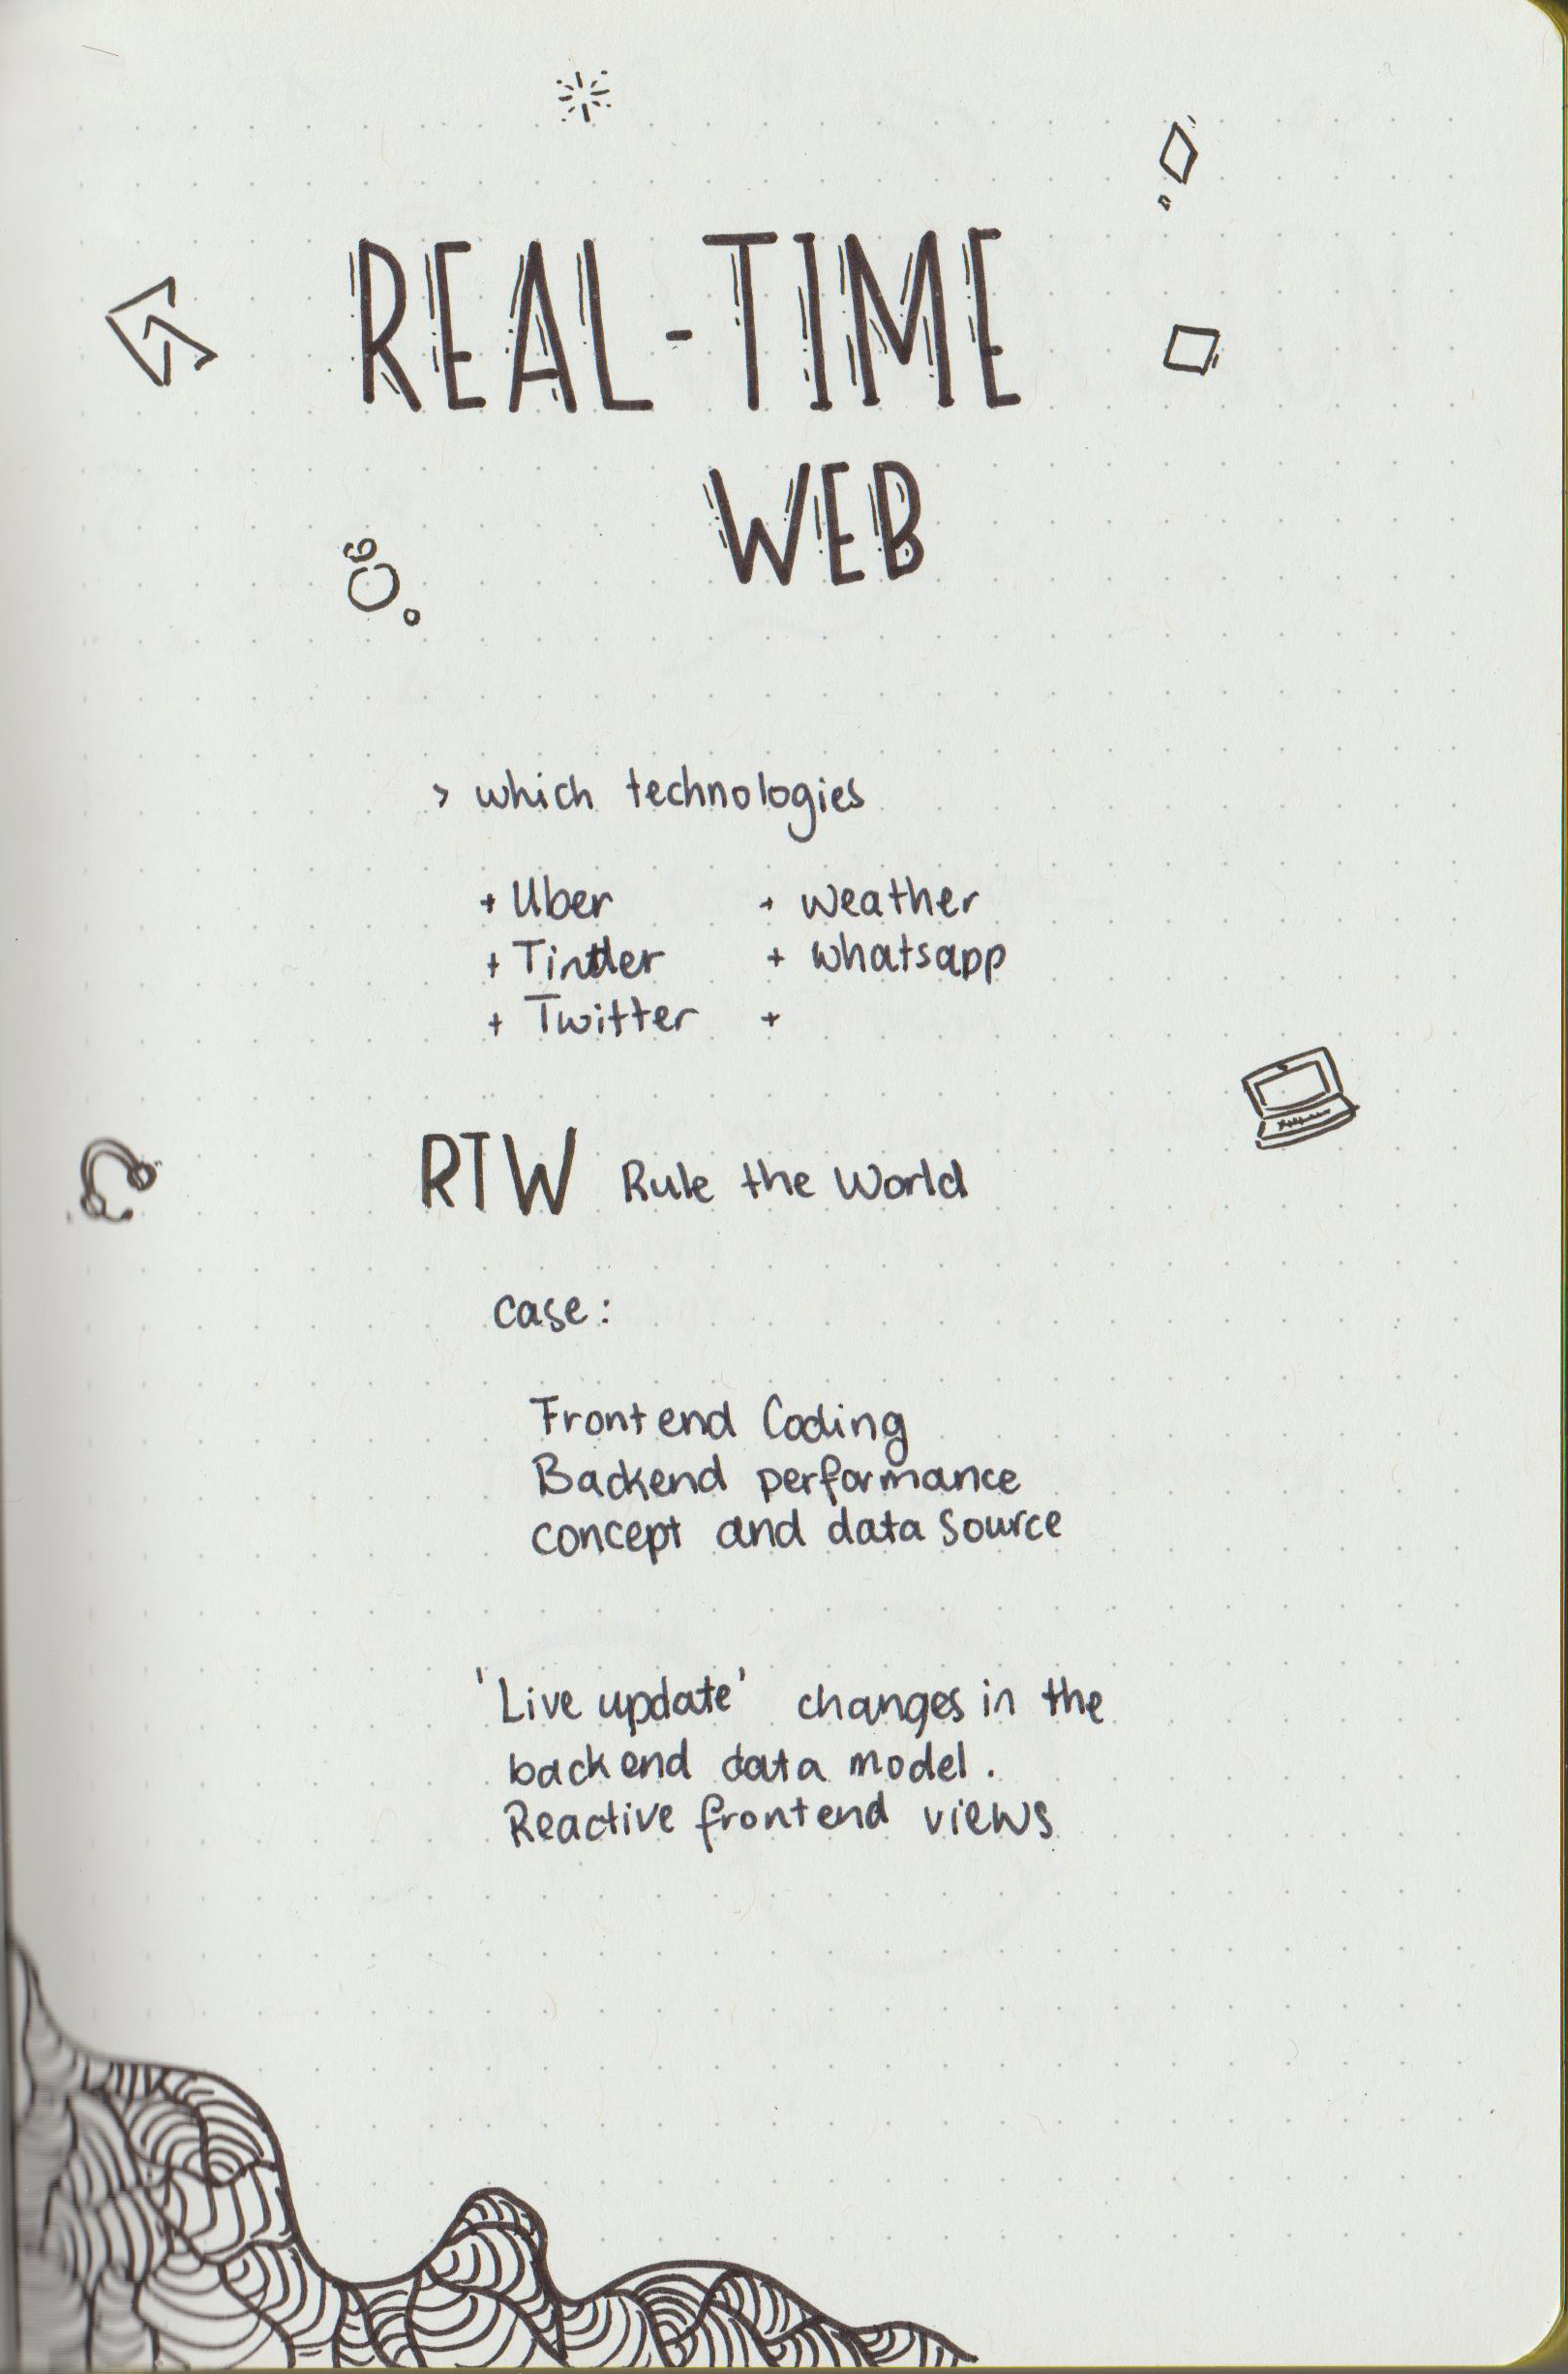 REAL-TIME
WEB
> which technologies
+ Uber
+ Tinder
+ Twitter
+ weather
+ whatsapp
+
RTW Rule the World
case:
Frontend Coding
Backend performance
concept and data source
'Live update' changes in the
backend data model.
Reactive frontend views